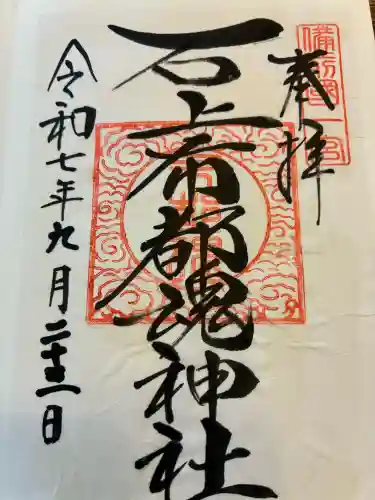 奉拝
備前國一宮
石上布都魂神社
令和七年九月二十三日